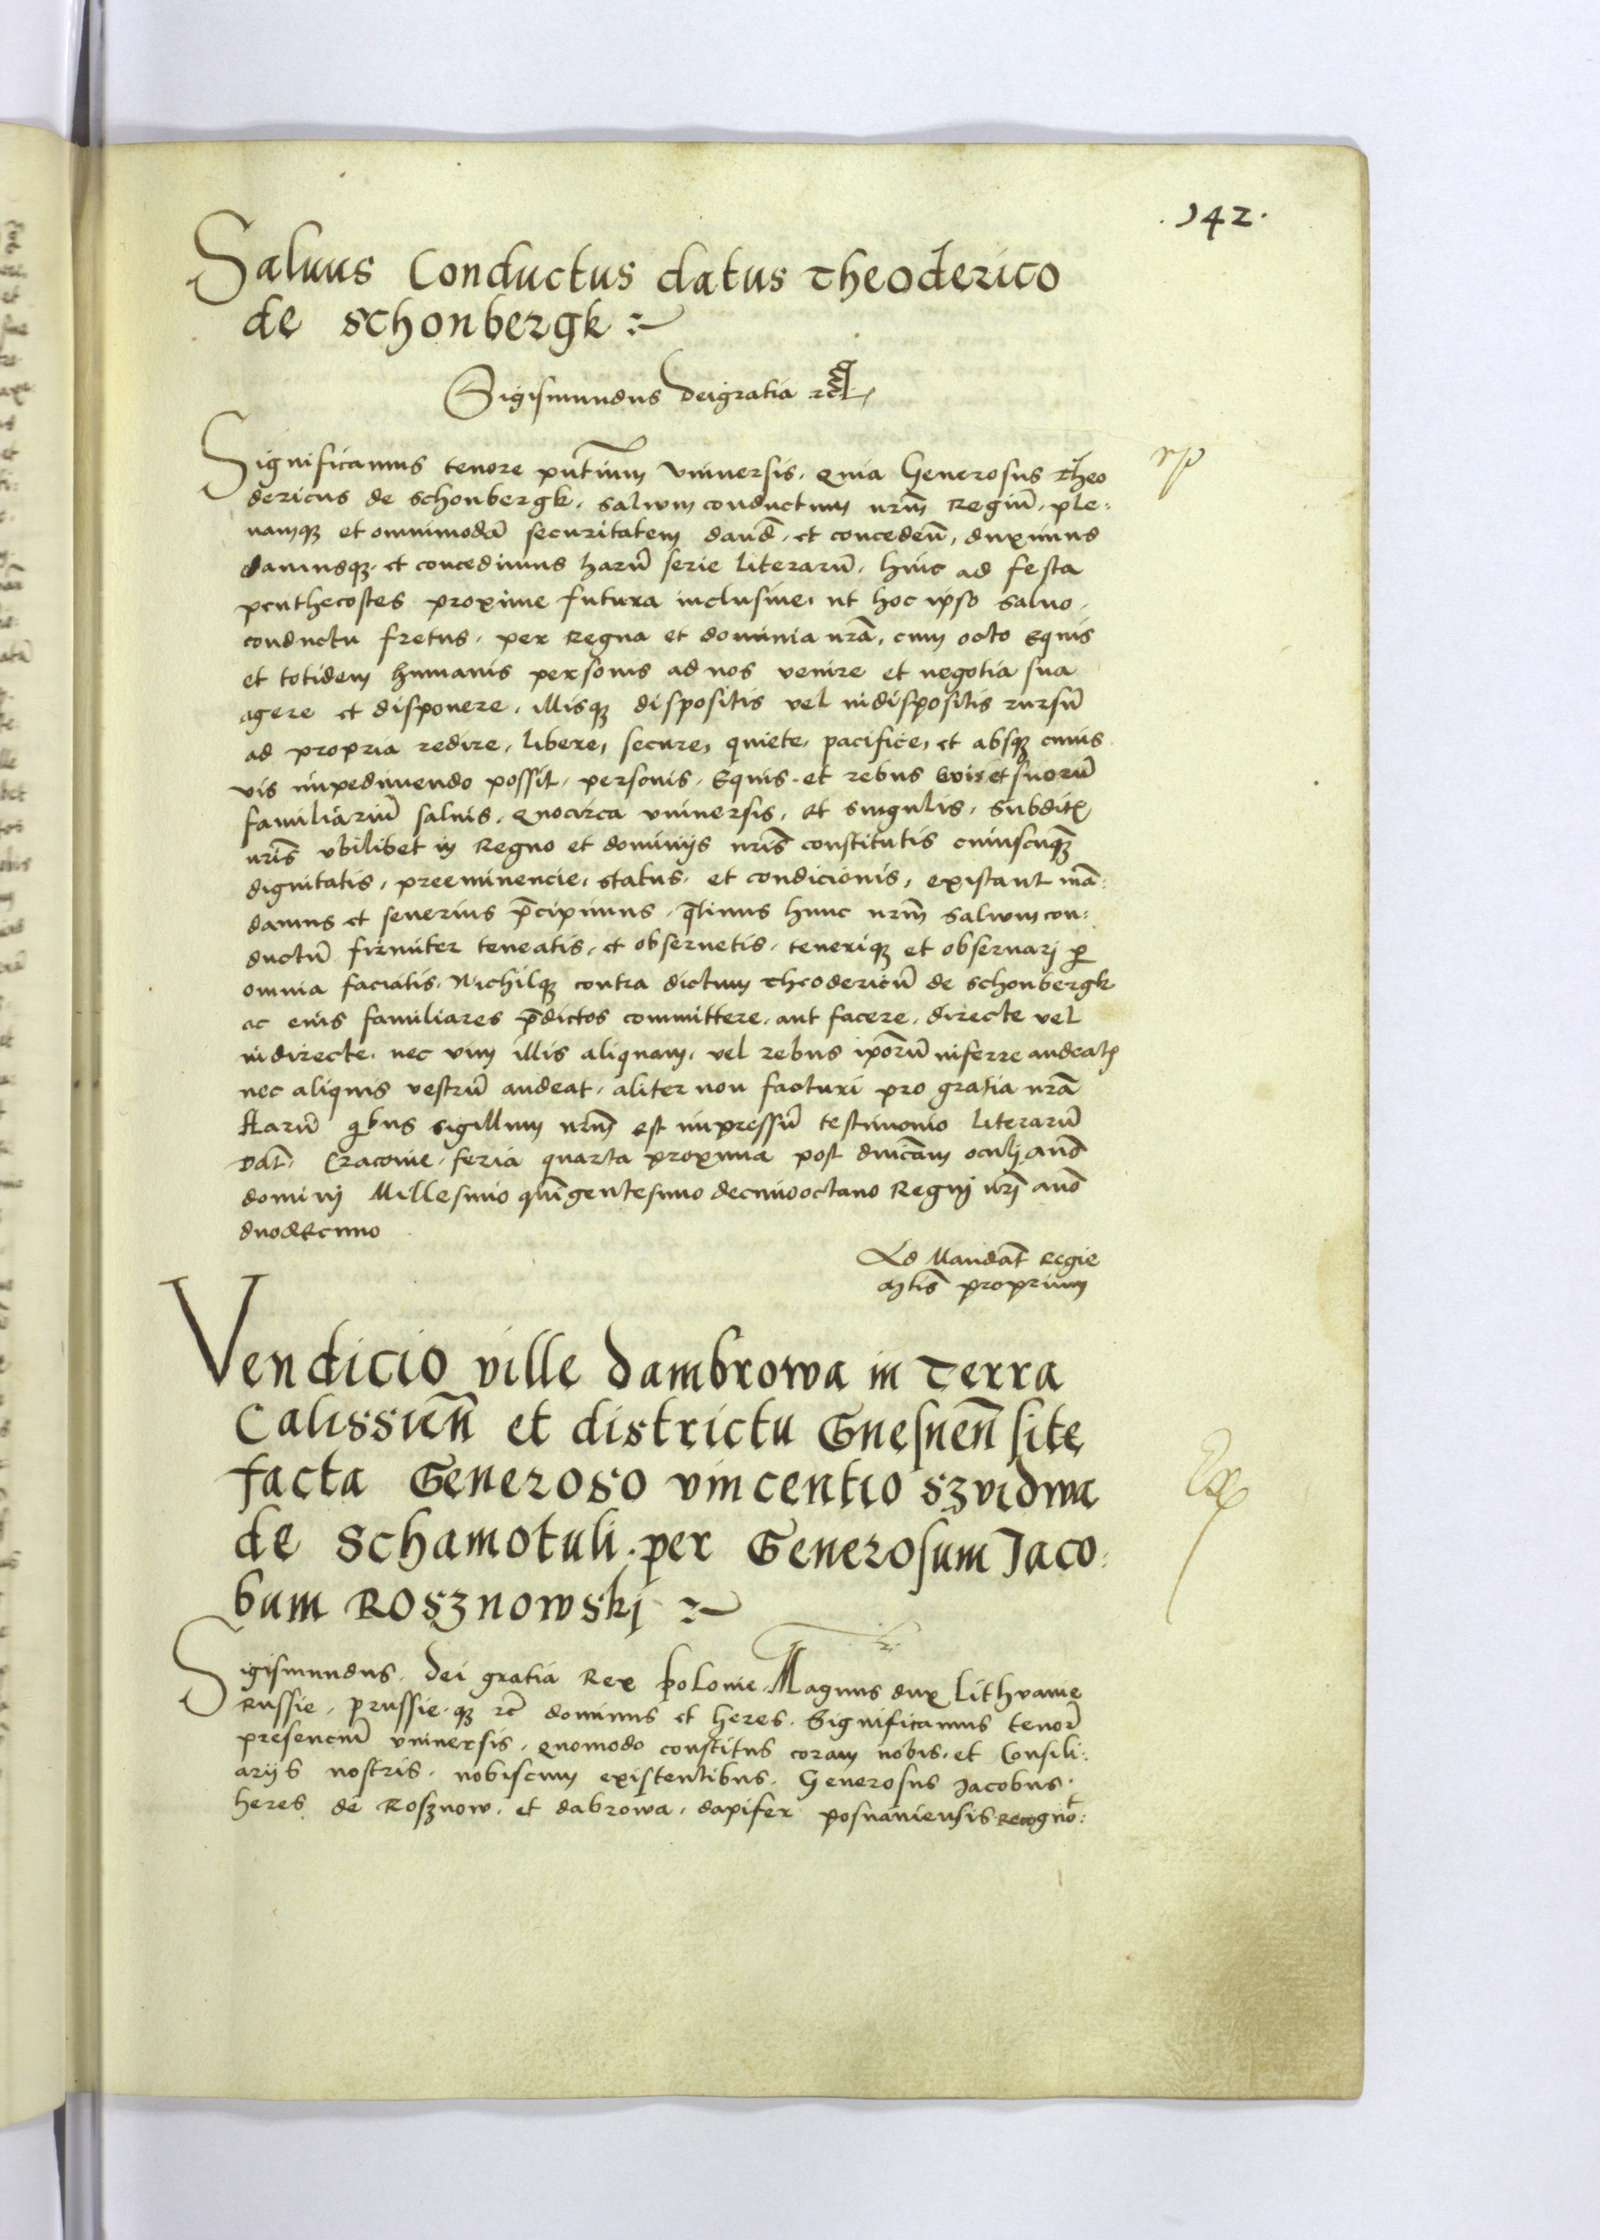 .142.
Saluus Conductus datus Theoderico
de Schonbergk
Sigismundus Dei gratia
Significamus tenore pñtium Vniuersis. Quia Generosus Theo
dericus de Schonbergk. Saluum conductum nrm̃ Regiũ. ple:
namq; et omnimodã securitatem dand̃. et conceden̄. duximus
Damusq;. et concedimus harũ serie Literarũ. hinc ad festa
penthecostes proxime futura inclusiue. ut hoc ipso saluo.
conductu fretus. per Regna et dominia nrã. cum octo Equis
et totidem humanis personis ad nos venire et negotia sua
agere et disponere. illisq; dispositis vel indispositis rursũ
ad propria redire. libere, secure, quiete. pacifice, et absq; cuius
vis impedimendo possit. personis. Equis. et rebus suis et suorũ
familiariũ saluis. Quocirca vniuersis. et singulis. Subdit
nrĩs vbilibet in Regno et dominijs nrĩs constitutis cuiuscuq;
dignitatis. preeminencie. status. et condicionis, existant mã:
damus et seuerius p̄cipimus. q̃tinus hunc nrm̃ Saluum con:
ductũ firmiter teneatis. et obseruetis. teneriq; et obseruarj p̱
omnia faciatis. Nichilq; contra dictum Theodericũ de Schonbergk
ac eius familiares p̄dictos committere. aut facere. directe vel
indirecte. nec vim illis aliquam. vel rebus ipõrũ inferre audeat
nec aliquis vestrũ audeat. aliter non facturi pro gratia nrã
Harũ q̃bus sigillum nrm̃ est impressũ testimonio Literarũ
Dat̃. Cracouie. feria quarta proxima post dnĩcam oculj anõ
dominj Millesimo quĩgentesimo decimooctauo Regnj nrĩ anõ
duodecimo
Ad Mandat̃ Regie
Mtĩs proprium
Vendicio ville Dambrowa in Terra
Calissien̄ et districtu Gnesnen̄ site
facta Generoso vincentio Szvidwa
de Schamotuli. per Generosum Jaco:
bum Rosznowskj
Sigismundus. Dei gratia Rex Polonie. Magnus dux Lithvanie
Russie. Prussie. q; rc̃ dominus et heres. Significamus tenorẽ
presenciũ vniuersis. Quomodo constitus coram nobis. et Consili:
arijs nostris. nobiscum existentibus. Generosus Jacobus.
heres de Rosznow. et dabrowa. dapifer posnaniensis. Recogno: